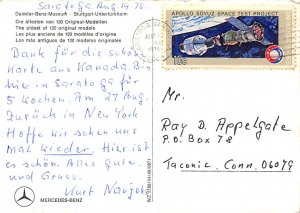 Saratoga, Aug 14. 78.
Daimler-Benz-Museum · Stuttgart-Untertürkheim
Die ältesten von 120 Original-Modellen
The oldest of 120 original models
Les plus anciens de 120 modèles d'origine
Los más antiguos de 120 modelos originales
Dank für die schöne
Karte aus Kanada. Bin
hier in Saratoga für
5 Wochen. Am 27 Aug.
Zurück in New York
Hoffe wir sehen uns
mal wieder. Hier ist
es schön. Alles gute
und Gruss.
Kurt
MERCEDES-BENZ
APOLLO SOYUZ SPACE TEST PROJECT
Mr.
Ray D. Appelgate
P.O. Box 77
Taconic, Conn. 06079